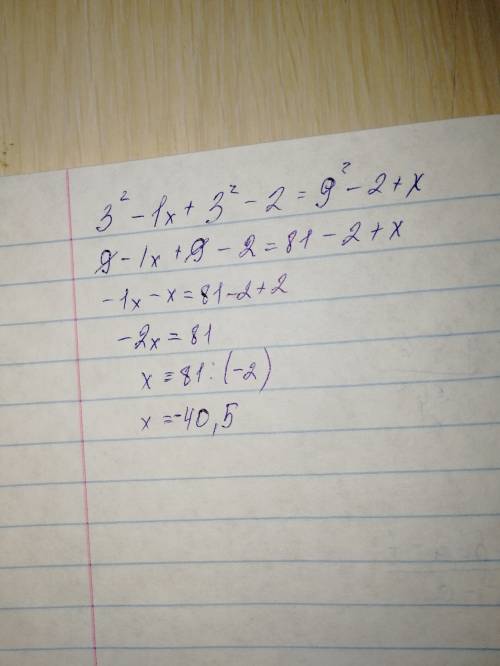 3² - 1x + 3² - 2 = 9² - 2 + x
9 - 1x + 9 - 2 = 81 - 2 + x
-1x - x = 81 - 2 + 2
-2x = 81
x = 81 : (-2)
x = -40,5